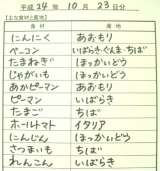 平成 24年 10月 23日分
【主な食材と産地】
食材 産地
にんにく あおもり
ベーコン いばらき・ぐんま・ちば
たまねぎ ほっかいどう
じゃがいも ほっかいどう
あかピーマン あおもり
ピーマン いばらき
たまご ちば
ホールトマト イタリア
にんじん ほっかいどう
さつまいも ちば
れんこん いばらき